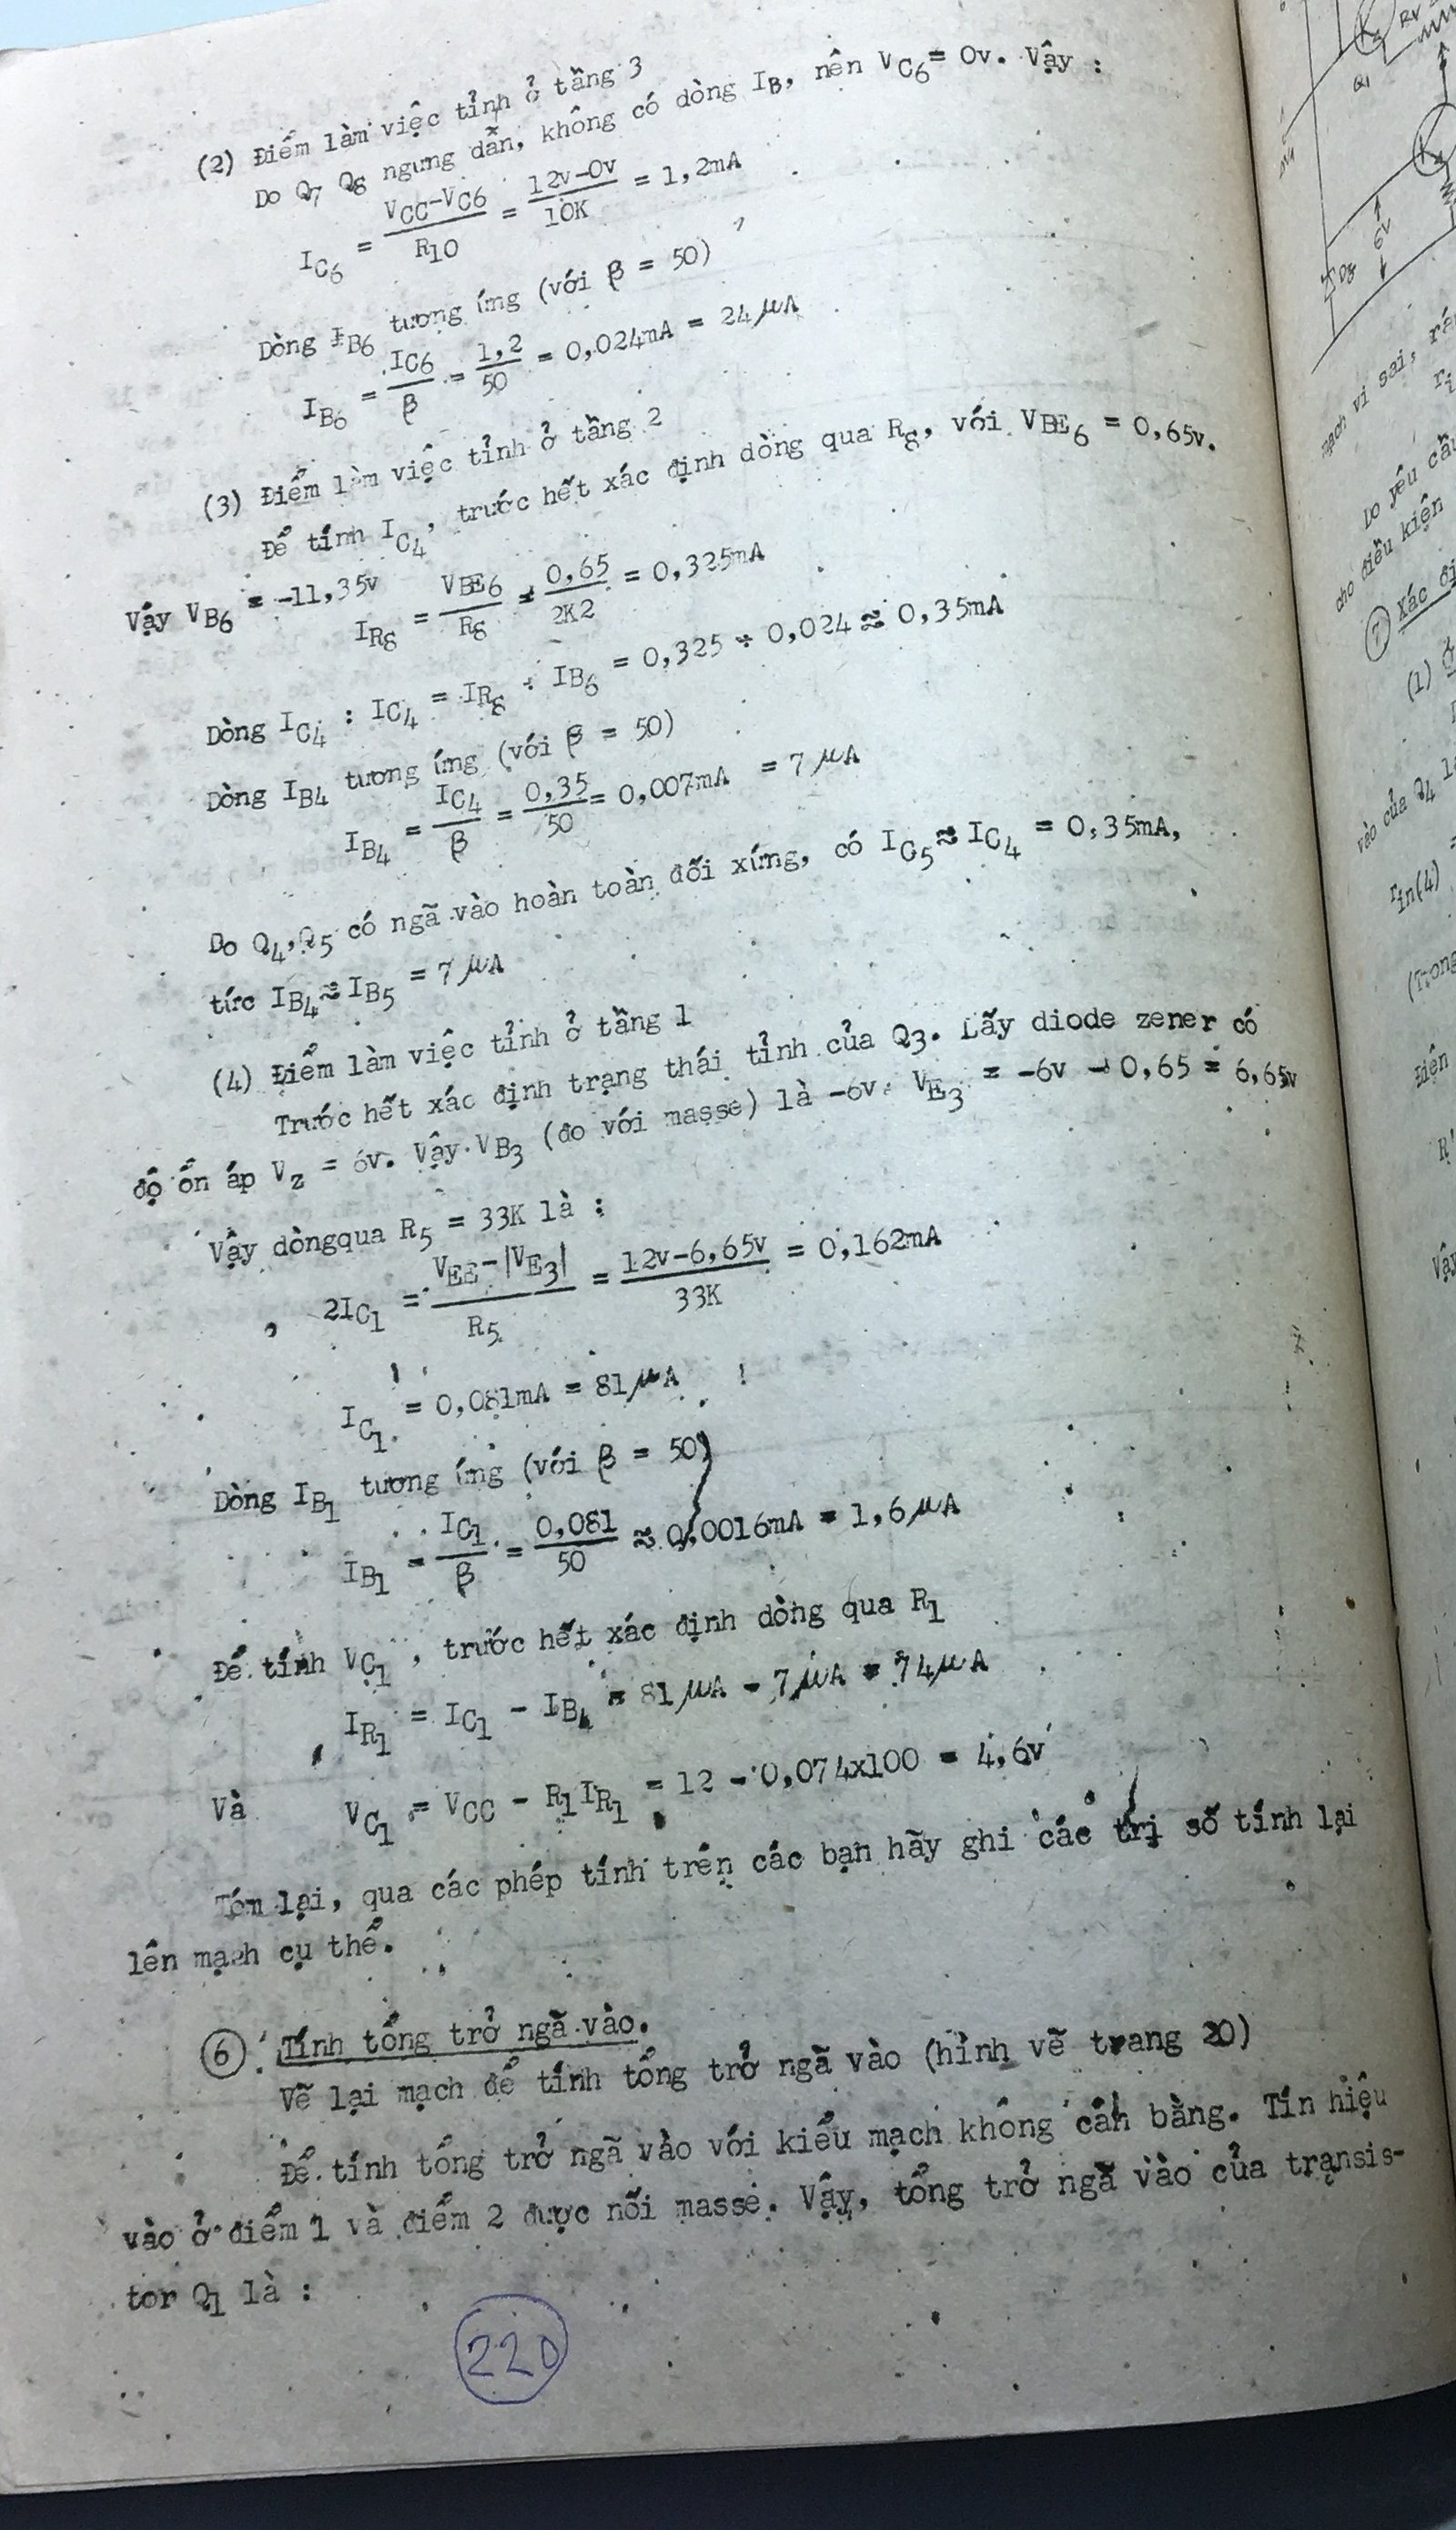 (2) Điểm làm việc tỉnh ở tầng 3
Do Q7 Q8 ngưng dẫn, không có dòng IB, nên VC6 = 0v. Vậy :
IC6 = (VCC-VC6)/R10 = (12v-0v)/10K = 1,2mA
Dòng IB6 tương ứng (với β = 50)
IB6 = IC6/β = 1,2/50 = 0,024mA = 24μA
(3) Điểm làm việc tỉnh ở tầng 2
Để tính IC4, trước hết xác định dòng qua R8, với VBE6 = 0,65v.
Vậy VB6 = -11,35v
IR8 = VBE6/R8 = 0,65/2K2 = 0,325mA
Dòng IC4 : IC4 = IR8 + IB6 = 0,325 + 0,024 ≈ 0,35mA
Dòng IB4 tương ứng (với β = 50)
IB4 = IC4/β = 0,35/50 = 0,007mA = 7μA
Do Q4,Q5 có ngã vào hoàn toàn đối xứng, có IC5 ≈ IC4 = 0,35mA,
tức IB4 ≈ IB5 = 7μA
(4) Điểm làm việc tỉnh ở tầng 1
Trước hết xác định trạng thái tỉnh của Q3. Lấy diode zener có
độ ổn áp Vz = 6v. Vậy VB3 (đo với masse) là -6v. VE3 = -6v - 0,65 = 6,65v
Vậy dòngqua R5 = 33K là :
2IC1 = (VEE-|VE3|)/R5 = (12v-6,65v)/33K = 0,162mA
IC1 = 0,081mA = 81μA
Dòng IB1 tương ứng (với β = 50)
IB1 = IC1/β = 0,081/50 ≈ 0,0016mA = 1,6μA
Để tính VC1, trước hết xác định dòng qua R1
IR1 = IC1 - IB4 = 81μA - 7μA = 74μA
Và VC1 = VCC - R1IR1 = 12 - 0,074x100 = 4,6v
Tóm lại, qua các phép tính trên các bạn hãy ghi các trị số tính lại
lên mạch cụ thể.
6 Tính tổng trở ngã vào.
Vẽ lại mạch để tính tổng trở ngã vào (hình vẽ trang 20)
Để tính tổng trở ngã vào với kiểu mạch không cân bằng. Tín hiệu
vào ở điểm 1 và điểm 2 được nối masse. Vậy, tổng trở ngã vào của transis-
tor Q1 là :
220
Q1
6V
D8
mạch vi sai,
Do yêu cầu
cho điều kiện
7 Xác
(1)
vào của Q4
rin(4) =
(Trong
Điện
Vậy